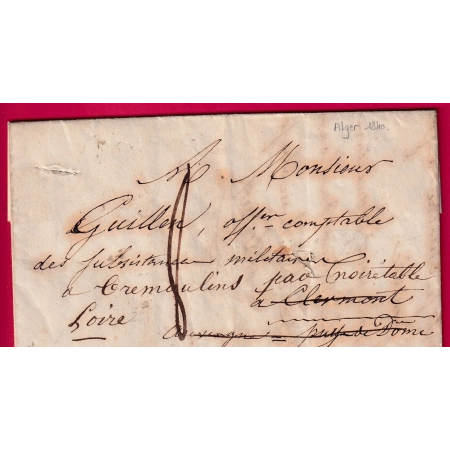 Alger 1840.
A Monsieur
Guillen, off.er comptable
des subsistances militaires
à Cremoulins par Noirétable
à Clermont
Loire
auvergne puy de Dôme